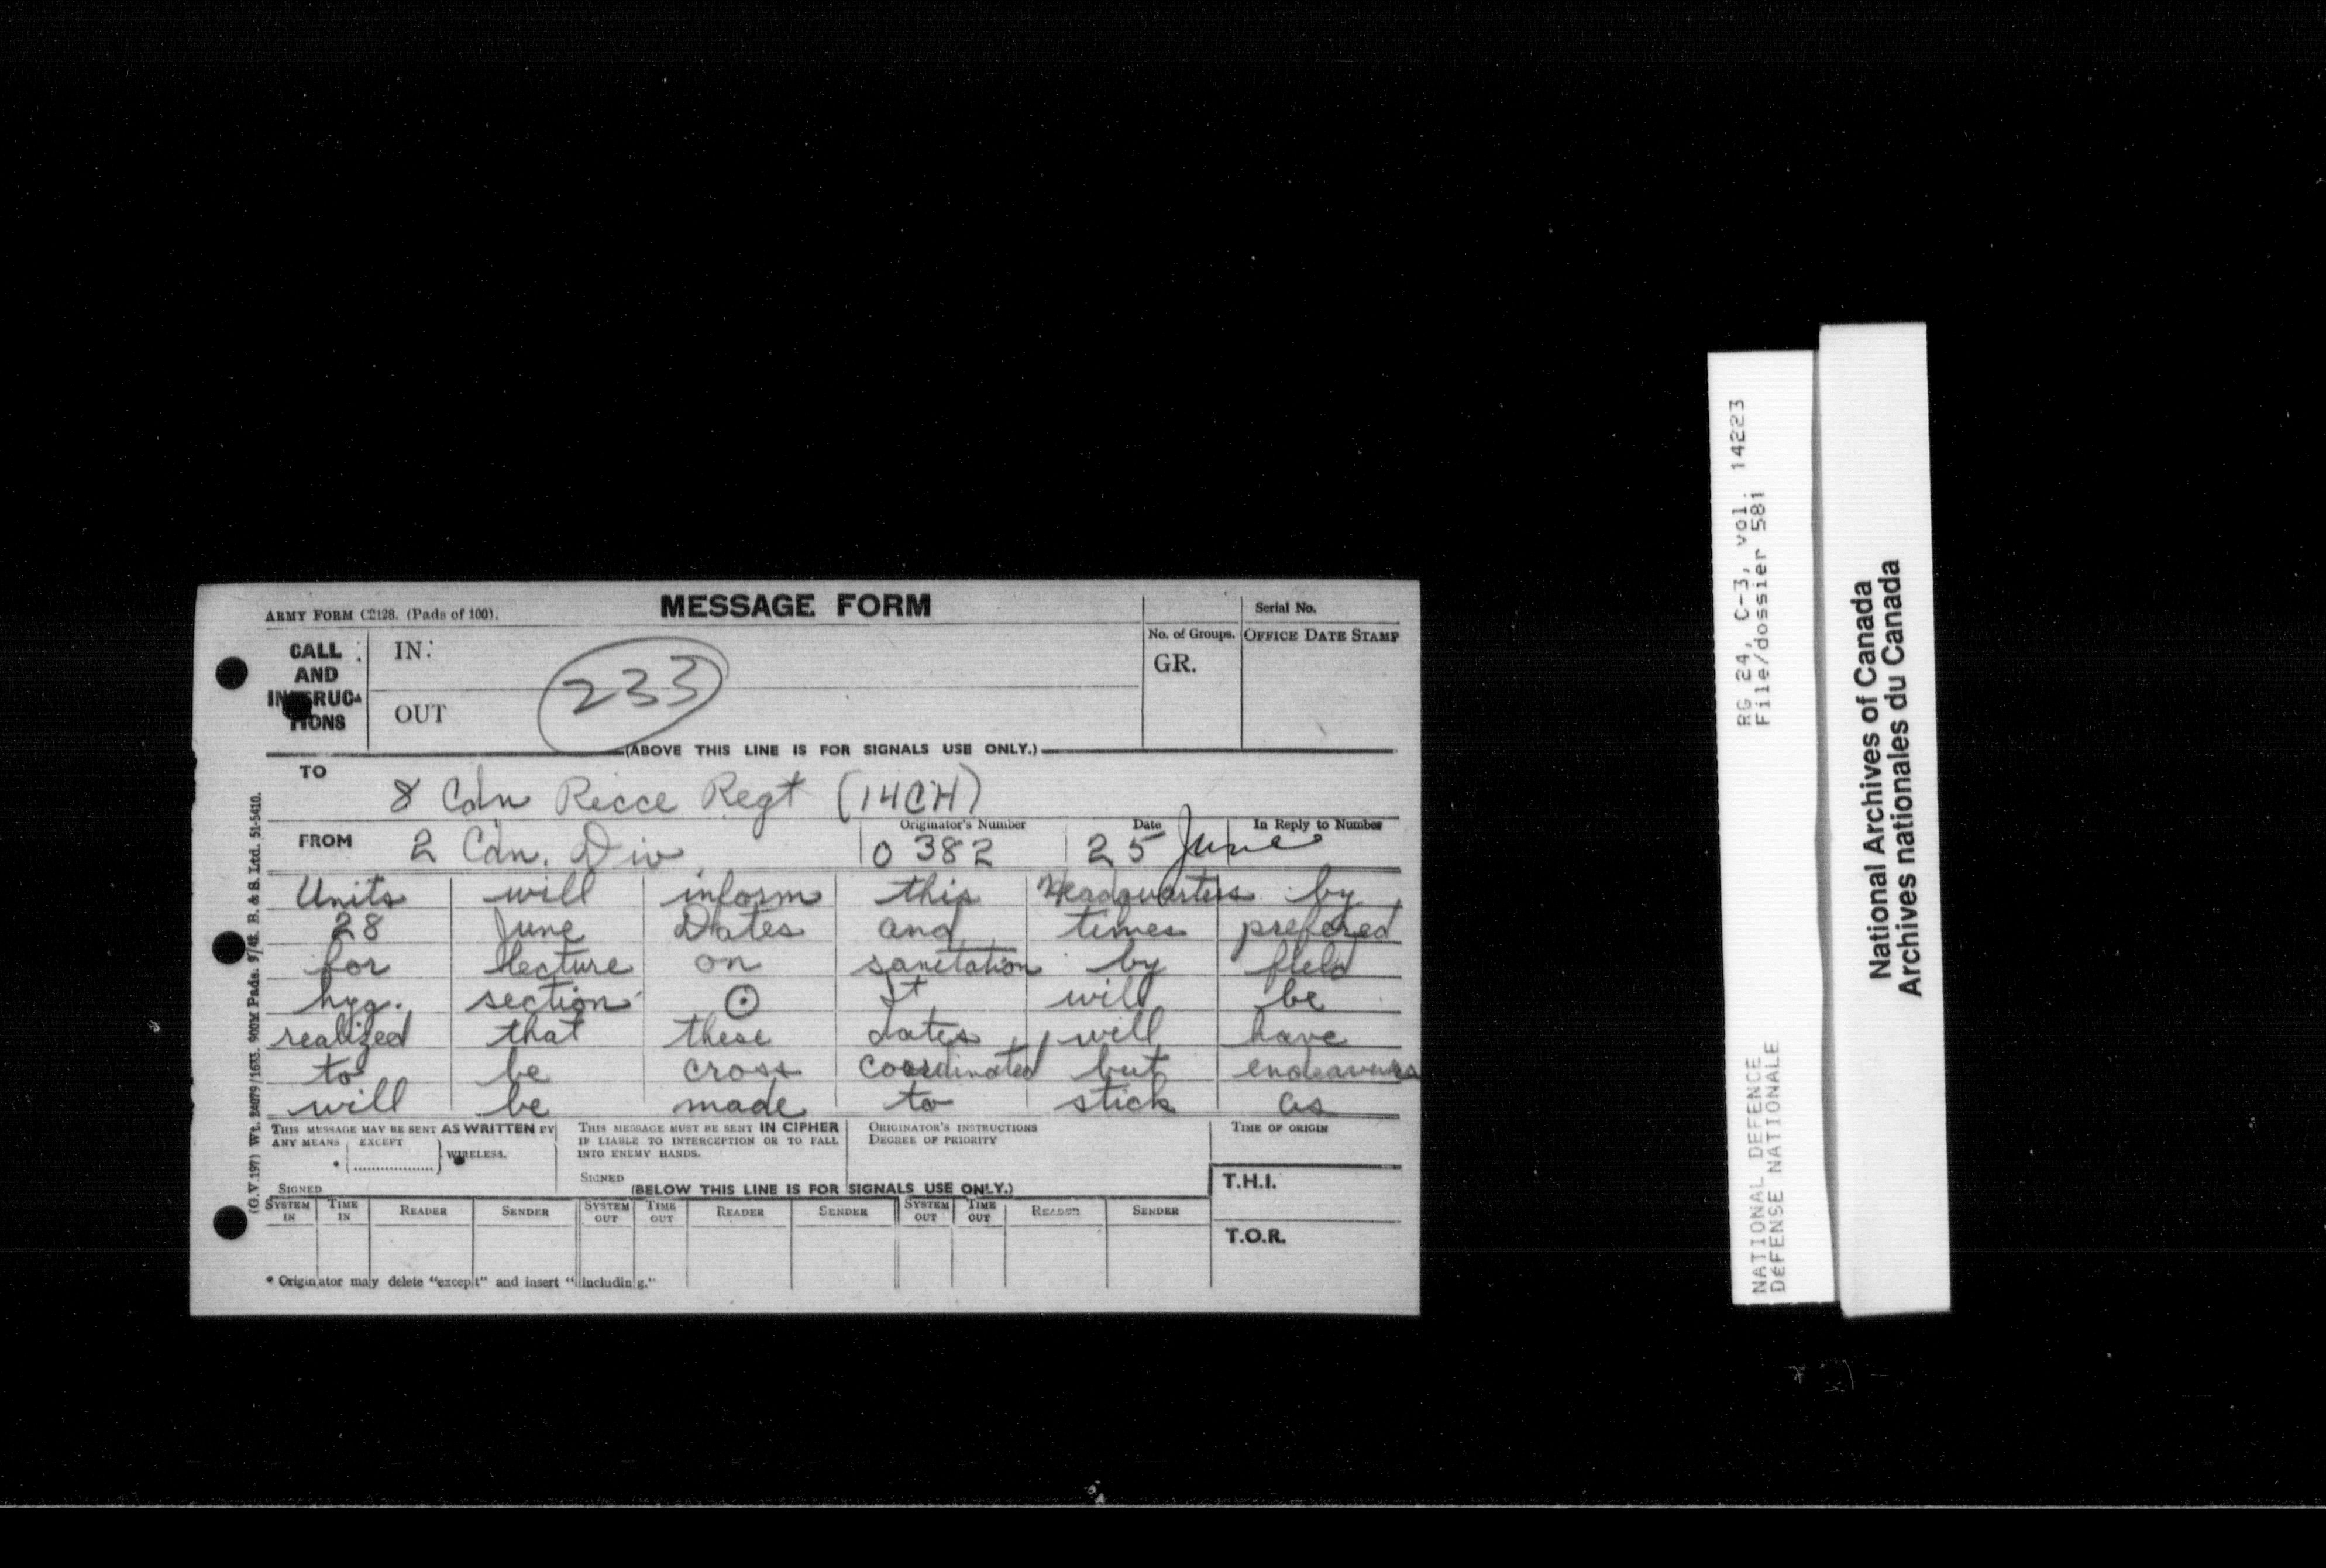 ARMY FORM C2128. (Pads of 100).
MESSAGE FORM
Serial No.
CALL AND INSTRUC-TIONS
IN:
OUT
233
No. of Groups.
GR.
OFFICE DATE STAMP
(ABOVE THIS LINE IS FOR SIGNALS USE ONLY.)
TO
8 Cdn Recce Regt (14CH)
FROM 2 Cdn. Div
Originator's Number
O 382
Date
25 June
In Reply to Number
Units will inform this Headquarters by
28 June Dates and times prefered
for lecture on sanitation by field
hyg. section ⊙ It will be
realized that these dates will have
to be cross coordinated but endeavours
will be made to stick as
THIS MESSAGE MAY BE SENT AS WRITTEN BY
ANY MEANS EXCEPT
* (....................) WIRELESS.
SIGNED
THIS MESSAGE MUST BE SENT IN CIPHER
IF LIABLE TO INTERCEPTION OR TO FALL
INTO ENEMY HANDS.
SIGNED
ORIGINATOR'S INSTRUCTIONS
DEGREE OF PRIORITY
TIME OF ORIGIN
(BELOW THIS LINE IS FOR SIGNALS USE ONLY.)
T.H.I.
SYSTEM IN TIME IN READER SENDER SYSTEM OUT TIME OUT READER SENDER SYSTEM OUT TIME OUT READER SENDER
T.O.R.
* Originator may delete "except" and insert "including."
(G.V.197) Wt. 24079/1633. 900M Pads. B. & S. Ltd. 51-5410.
RG 24, C-3, vol. 14223
File/dossier 581
NATIONAL DEFENCE
DÉFENSE NATIONALE
National Archives of Canada
Archives nationales du Canada